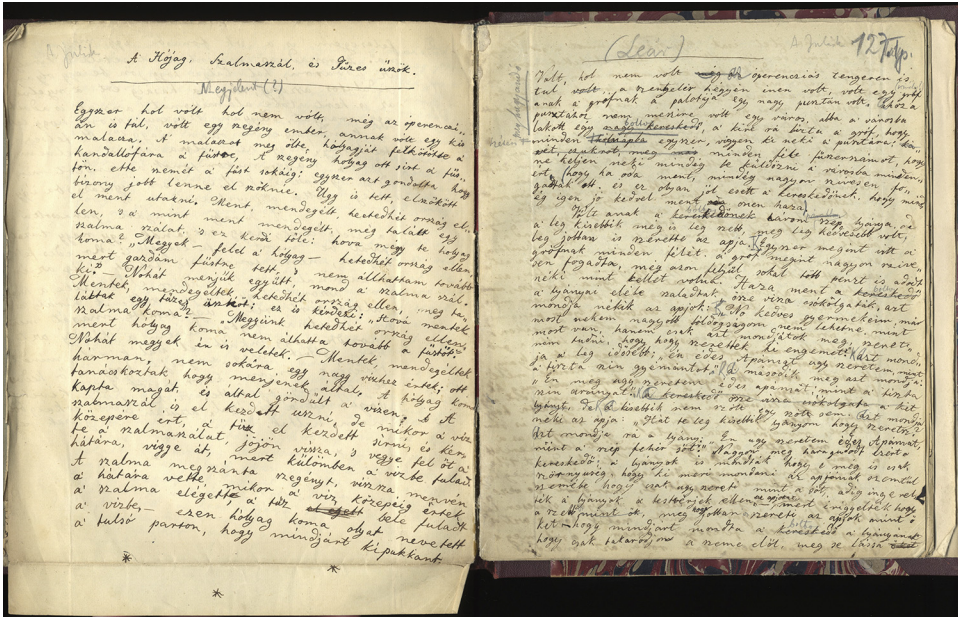 A Julik
A Hójag, Szalmaszál, és Tüzes üszök.
Megjelent (?)
Egyszer hol vólt hol nem vólt, még az óperenci„
án is túl, vólt egy szegény ember, annak vólt egy kis
malacza. A malaczot meg ölte, hólyagját felkötötte a
kandallófára a füstre, A szegény hólyag ott sirt a füs„
tön, ette szemét a füst sokáig; egyszer azt gondolta hogy
bizony jobb lenne el szöknie. Úgy is tett, elszökött
el ment utazni. Ment, mendegélt, hetedhét ország el„
len, s a mint ment mendegélt, meg talált egy
szalma szálat, 's ez kérdi tőle: hova mégy te hólyag
koma? „Megyek — felel a hólyag — hetedhét ország ellen,
mert gazdám füstre tett, 's nem állhattam tovább
ki." Nohát menjük együtt, mond a szalma szál.
Mentek, mendegéltek, hetedhét ország ellen, meg ta„
láltak egy tüzes üszköt; ez is kérdezi: „Hová mentek
szalma koma?" — „Megyünk hetedhét ország ellen,
mert hólyag koma nem álhatta tovább a füstöt"
Nohát megyek én is veletek. — Mentek, mendegéltek
hárman, nem sokára egy nagy vizhez értek; ott
tanácskoztak, hogy menjenek által. A hólyag koma
kapta magát, és által göndült a vizen, A
szalmaszál is el kezdett uszni, de mikor a víz
közepére ért, a tüz el kezdett sirni és kér„
te a szalmaszálat, jöjön vissza, 's vegye fel őt a
hátára, vigye át, mert különben a vizbe fulad
A szalma megszánta szegényt, vissza menvén
a hátára vette, mikor a víz közepéig értek
a szalma elégett a tüz bele fuladt
a vizbe, — ezen hólyag koma olyat nevetett
a tulsó parton, hogy mindjárt kipukkant.
(Leár)
A Julik
127
Vólt, hol nem vólt az óperencziás tengeren is
tul, vólt a hegyen innen vólt, vólt egy gróf
anak a grófnak a palotája egy nagy pusztán vólt, ahoz a
pusztához nem messze vólt egy város, abba a városba
lakott egy a kire rá bizta a gróf, hogy
minden egyszer, vigyen ki neki a pusztára
minden féle füszerszámot, hogy
ne keljen neki mindég be küldözni a városba minden„
ért, hogy ha oda ment, mindég nagyon szivesen fo„
gadták ott, es ez olyan jól esett a kereskedőnek, hogy min„
dég igen jó kedvel ment onen haza.
Vólt annak a három szép lyánya, de
a leg kisebbik még is leg szebb, meg leg kedvesebb vólt,
leg jobban is szerette az apja. Egyszer megint vitt a
grófnak minden félét, a gróf megint nagyon szive„
sen fogadta, meg azon felyül sokal több pénzt is adott
neki mint kellet vólna. Haza ment a
a lyányai elébe szaladtak össze visza csókolgatták, azt
mondja nékik az apjok: „No kedves gyermekeim, már
most nekem nagyobb bóldogságom nem lehetne, mint
most van, hanem csak azt mondjátok meg, szeret„
nem tudni, hogy hogy szerettek ki engemet?" Azt mond„
ja a leg idősebb; „én édes Apámat úgy szeretem, mint
a tiszta szin gyémántot." A második meg azt mondja:
„Én meg úgy szeretem édes apámat, mint a tiszta
szin aranyat." A kereskedő össze vissa csókolgatta a két
lyányt, de a kisebbik nem szólt egy szót sem. Azt mondja
neki az apja: „Hát te leg kisebbik lyányom hogy szeretsz?"
Azt mondja rá a lyány: „Én úgy szeretem édes Apámat,
mint a nép fehér sót". Nagyon meg haragudott ezért a
kereskedő, a lyányok is mondják hogy e még is csak
szörnyüség, hogy ki meri mondani az apjának szemtül
szembe hogy csak úgy szereti mint a sót, adig inge rel„
ték a lyányok a testvérjek ellen az apjokat, mert irigyeltek hogy
a szebb mint ők, meg hogy jobban szereti az apjok mint ő„
ket — hogy mindjárt mondta a kereskedő a lyányanak
hogy csak takarodjon a szeme elől, meg se lássa